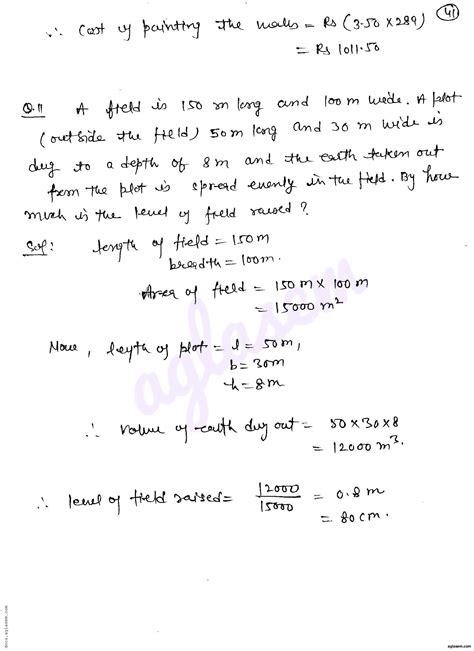 41
∴ Cost of painting the walls = Rs (3.50 × 289)
= Rs 1011.50
Q.11 A field is 150 m long and 100 m wide. A plot
(outside the field) 50 m long and 30 m wide is
dug to a depth of 8 m and the earth taken out
from the plot is spread evenly in the field. By how
much is the level of field raised?
Sol: length of field = 150 m
breadth = 100 m.
Area of field = 150 m × 100 m
= 15000 m²
Now, length of plot = l = 50 m,
b = 30 m
h = 8 m
aglasem
∴ Volume of earth dug out = 50 × 30 × 8
= 12000 m³.
∴ level of field raised = 12000/15000 = 0.8 m
= 80 cm.
docs.aglasem.com
aglasem.com